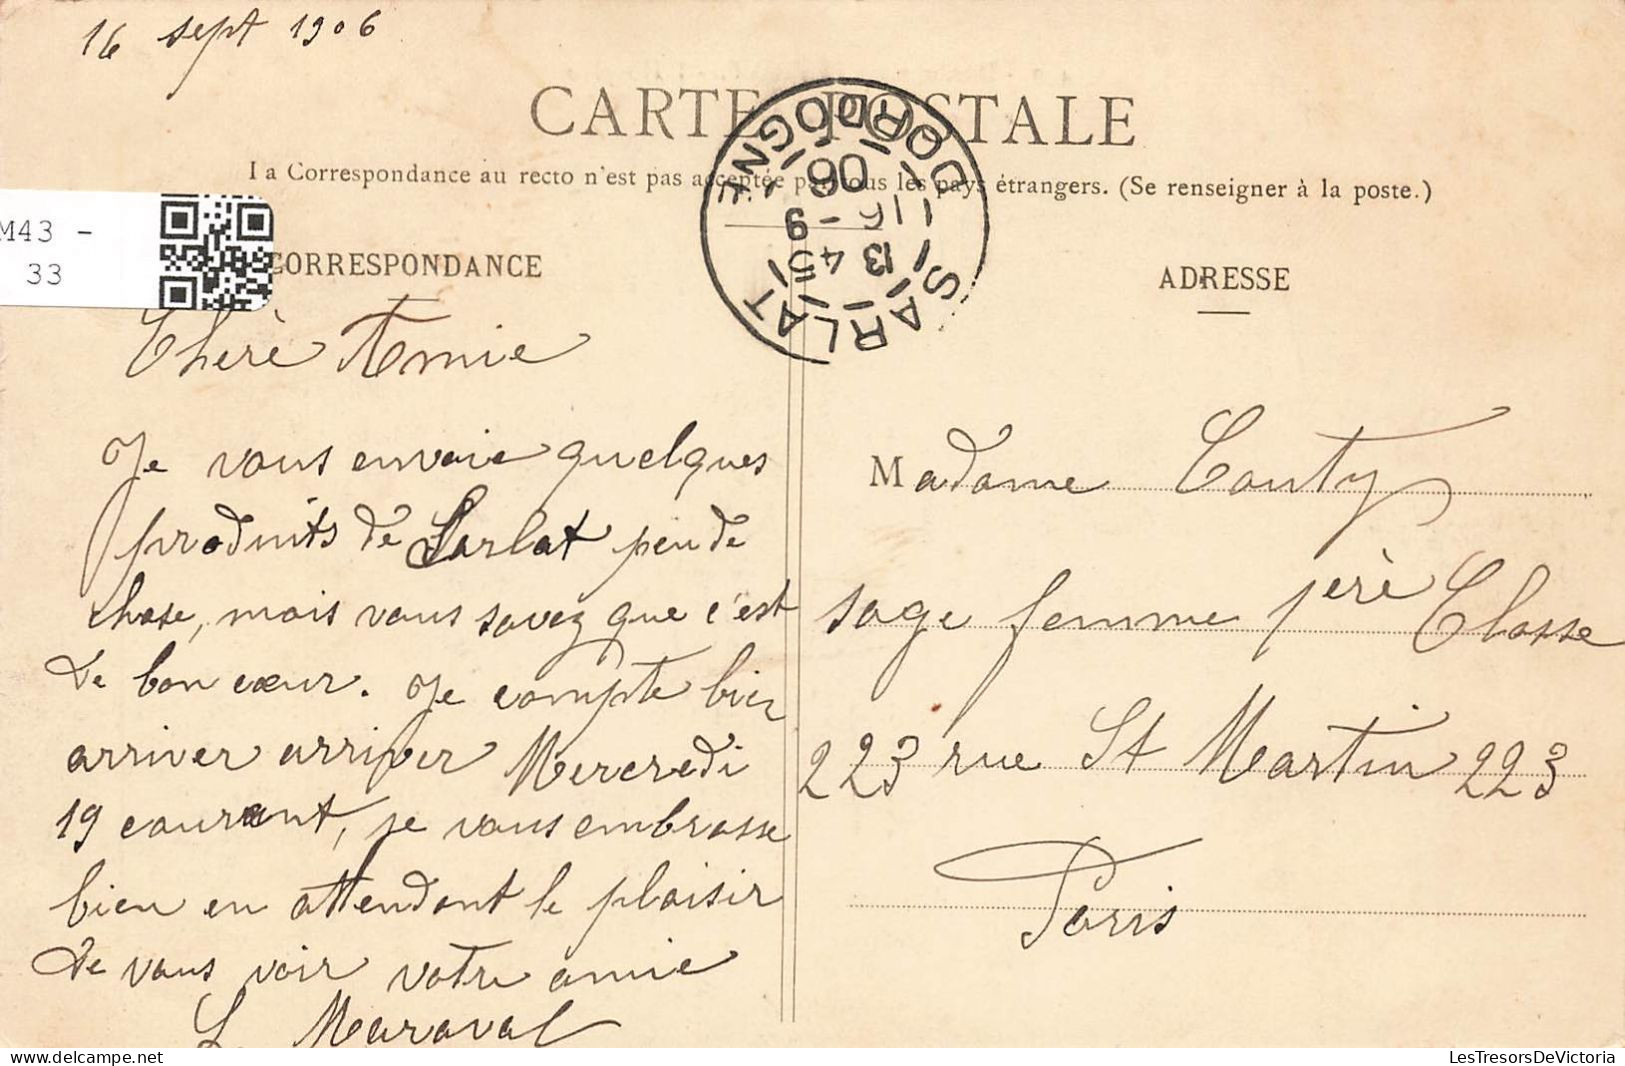 16 sept 1906
CARTE POSTALE
La Correspondance au recto n'est pas acceptée par tous les pays étrangers. (Se renseigner à la poste.)
SARLAT DORDOGNE
13 45
16 - 9
06
M43 -
33
CORRESPONDANCE
Chère Amie
Je vous envoie quelques
produits de Sarlat peu de
chose, mais vous savez que c'est
de bon cœur. Je compte bien
arriver arriver Mercredi
19 courant, je vous embrasse
bien en attendant le plaisir
de vous voir votre amie
L. Maraval
ADRESSE
Madame Couty
sage femme 1ère Classe
223 rue St Martin 223
Paris
LesTresorsDeVictoria